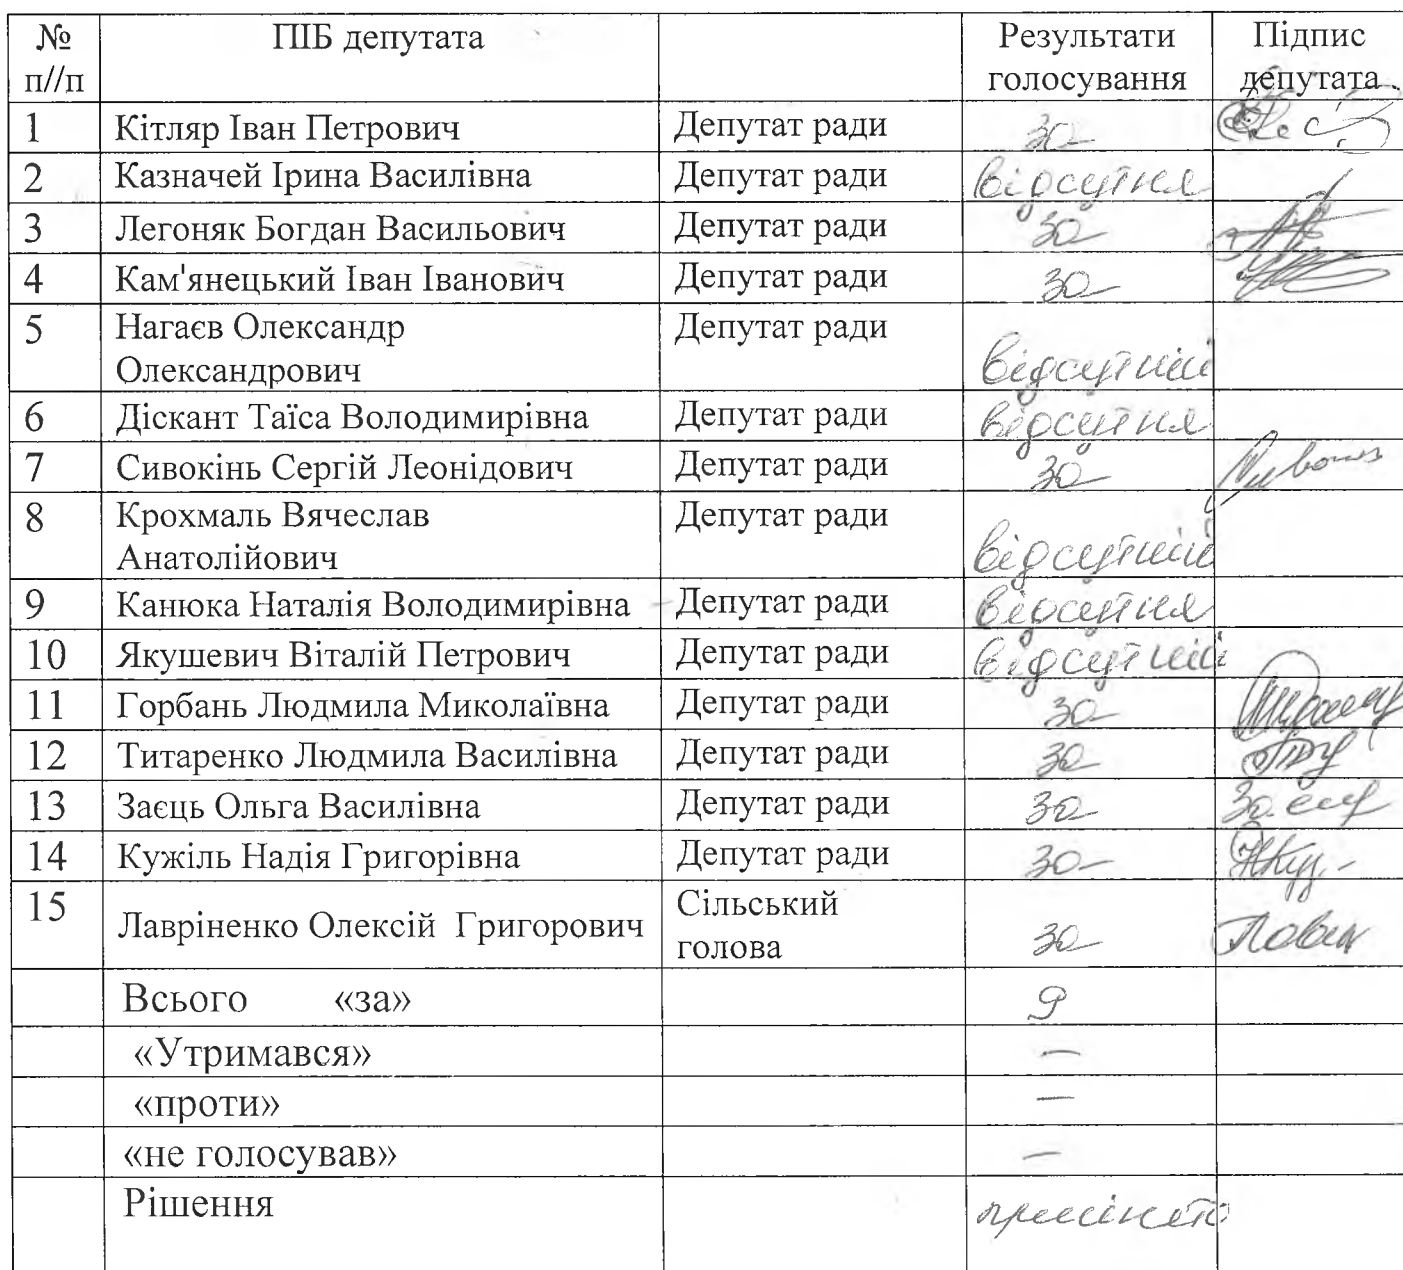 № п//п ПІБ депутата Результати голосування Підпис депутата
1 Кітляр Іван Петрович Депутат ради за
2 Казначей Ірина Василівна Депутат ради відсутня
3 Легоняк Богдан Васильович Депутат ради за
4 Кам'янецький Іван Іванович Депутат ради за
5 Нагаєв Олександр Депутат ради
Олександрович відсутній
6 Діскант Таїса Володимирівна Депутат ради відсутня
7 Сивокінь Сергій Леонідович Депутат ради за
8 Крохмаль Вячеслав Депутат ради
Анатолійович відсутній
9 Канюка Наталія Володимирівна Депутат ради відсутня
10 Якушевич Віталій Петрович Депутат ради відсутній
11 Горбань Людмила Миколаївна Депутат ради за
12 Титаренко Людмила Василівна Депутат ради за
13 Заєць Ольга Василівна Депутат ради за
14 Кужіль Надія Григорівна Депутат ради за
15 Лавріненко Олексій Григорович Сільський голова за
Всього «за» 9
«Утримався» —
«проти» —
«не голосував» —
Рішення